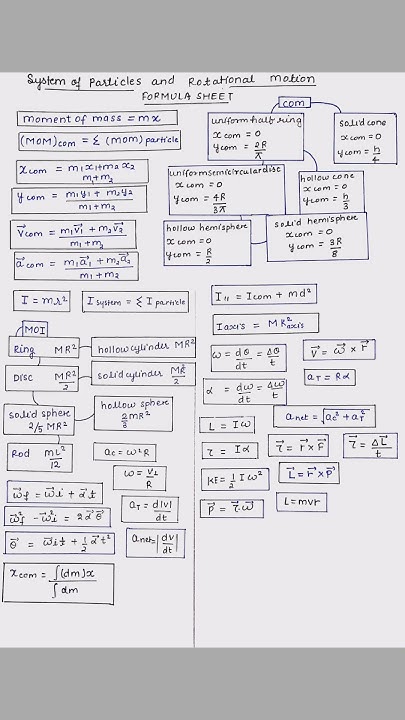 System of Particles and Rotational motion
FORMULA SHEET
moment of mass = mx
(MOM)com = Σ (mom) particle
xcom = m1x1+m2x2 / m1+m2
ycom = m1y1 + m2y2 / m1+m2
v⃗com = m1v⃗1 + m2v⃗2 / m1+m2
a⃗com = m1a⃗1 + m2a⃗2 / m1+m2
com
uniform half ring
xcom = 0
ycom = 2R/π
solid cone
xcom = 0
ycom = h/4
uniform semicircular disc
xcom = 0
ycom = 4R/3π
hollow cone
xcom = 0
ycom = h/3
hollow hemisphere
xcom = 0
ycom = R/2
solid hemisphere
xcom = 0
ycom = 3R/8
I = mr²
Isystem = Σ I particle
MOI
Ring MR²
hollow cylinder MR²
Disc MR²/2
solid cylinder MR²/2
solid sphere
2/5 MR²
hollow sphere
2/3 MR²
Rod mL²/12
ac = ω²R
ω = v⊥/R
ω⃗f = ω⃗i + α⃗t
ω⃗f² - ω⃗i² = 2α⃗θ⃗
θ⃗ = ω⃗it + 1/2 α⃗t²
aT = d|v|/dt
anet = |dv⃗/dt|
xcom = ∫(dm)x / ∫dm
I11 = Icom + md²
Iaxis = MK²axis
ω = dθ/dt = Δθ/t
v⃗ = ω⃗ × r⃗
α = dω/dt = Δω/t
aT = Rα
L = Iω
anet = √ac² + aT²
τ = Iα
τ⃗ = r⃗ × F⃗
τ⃗ = ΔL⃗/t
KE = 1/2 Iω²
L⃗ = r⃗ × P⃗
P⃗ = τ⃗.ω⃗
L = mvr